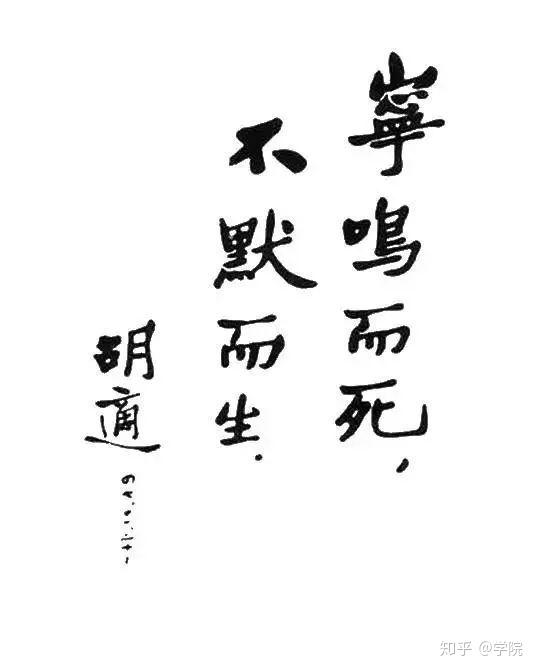 寧鳴而死，
不默而生．
胡適
知乎 @学院